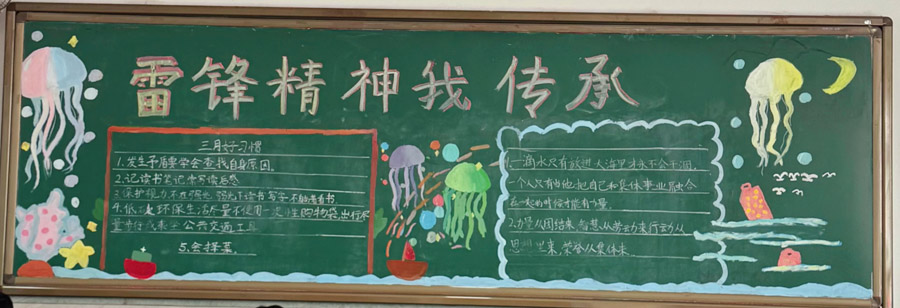 雷锋精神我传承
三月好习惯
1.发生矛盾要学会查找自身原因。
2.记读书笔记常写读后感
3.保护视力不在强光、弱光下读书写字,不躺着看书
4.低碳环保生活尽量不使用一次性的物品,出行尽
量步行或乘坐公共交通工具
5.会择菜。
1.一滴水只有放进大海里才永不会干涸,
一个人只有当他把自己和集体事业融合
在一起的时候才能有力量
2.力量从团结来,智慧从劳动来行动从
思想里来,荣誉从集体来